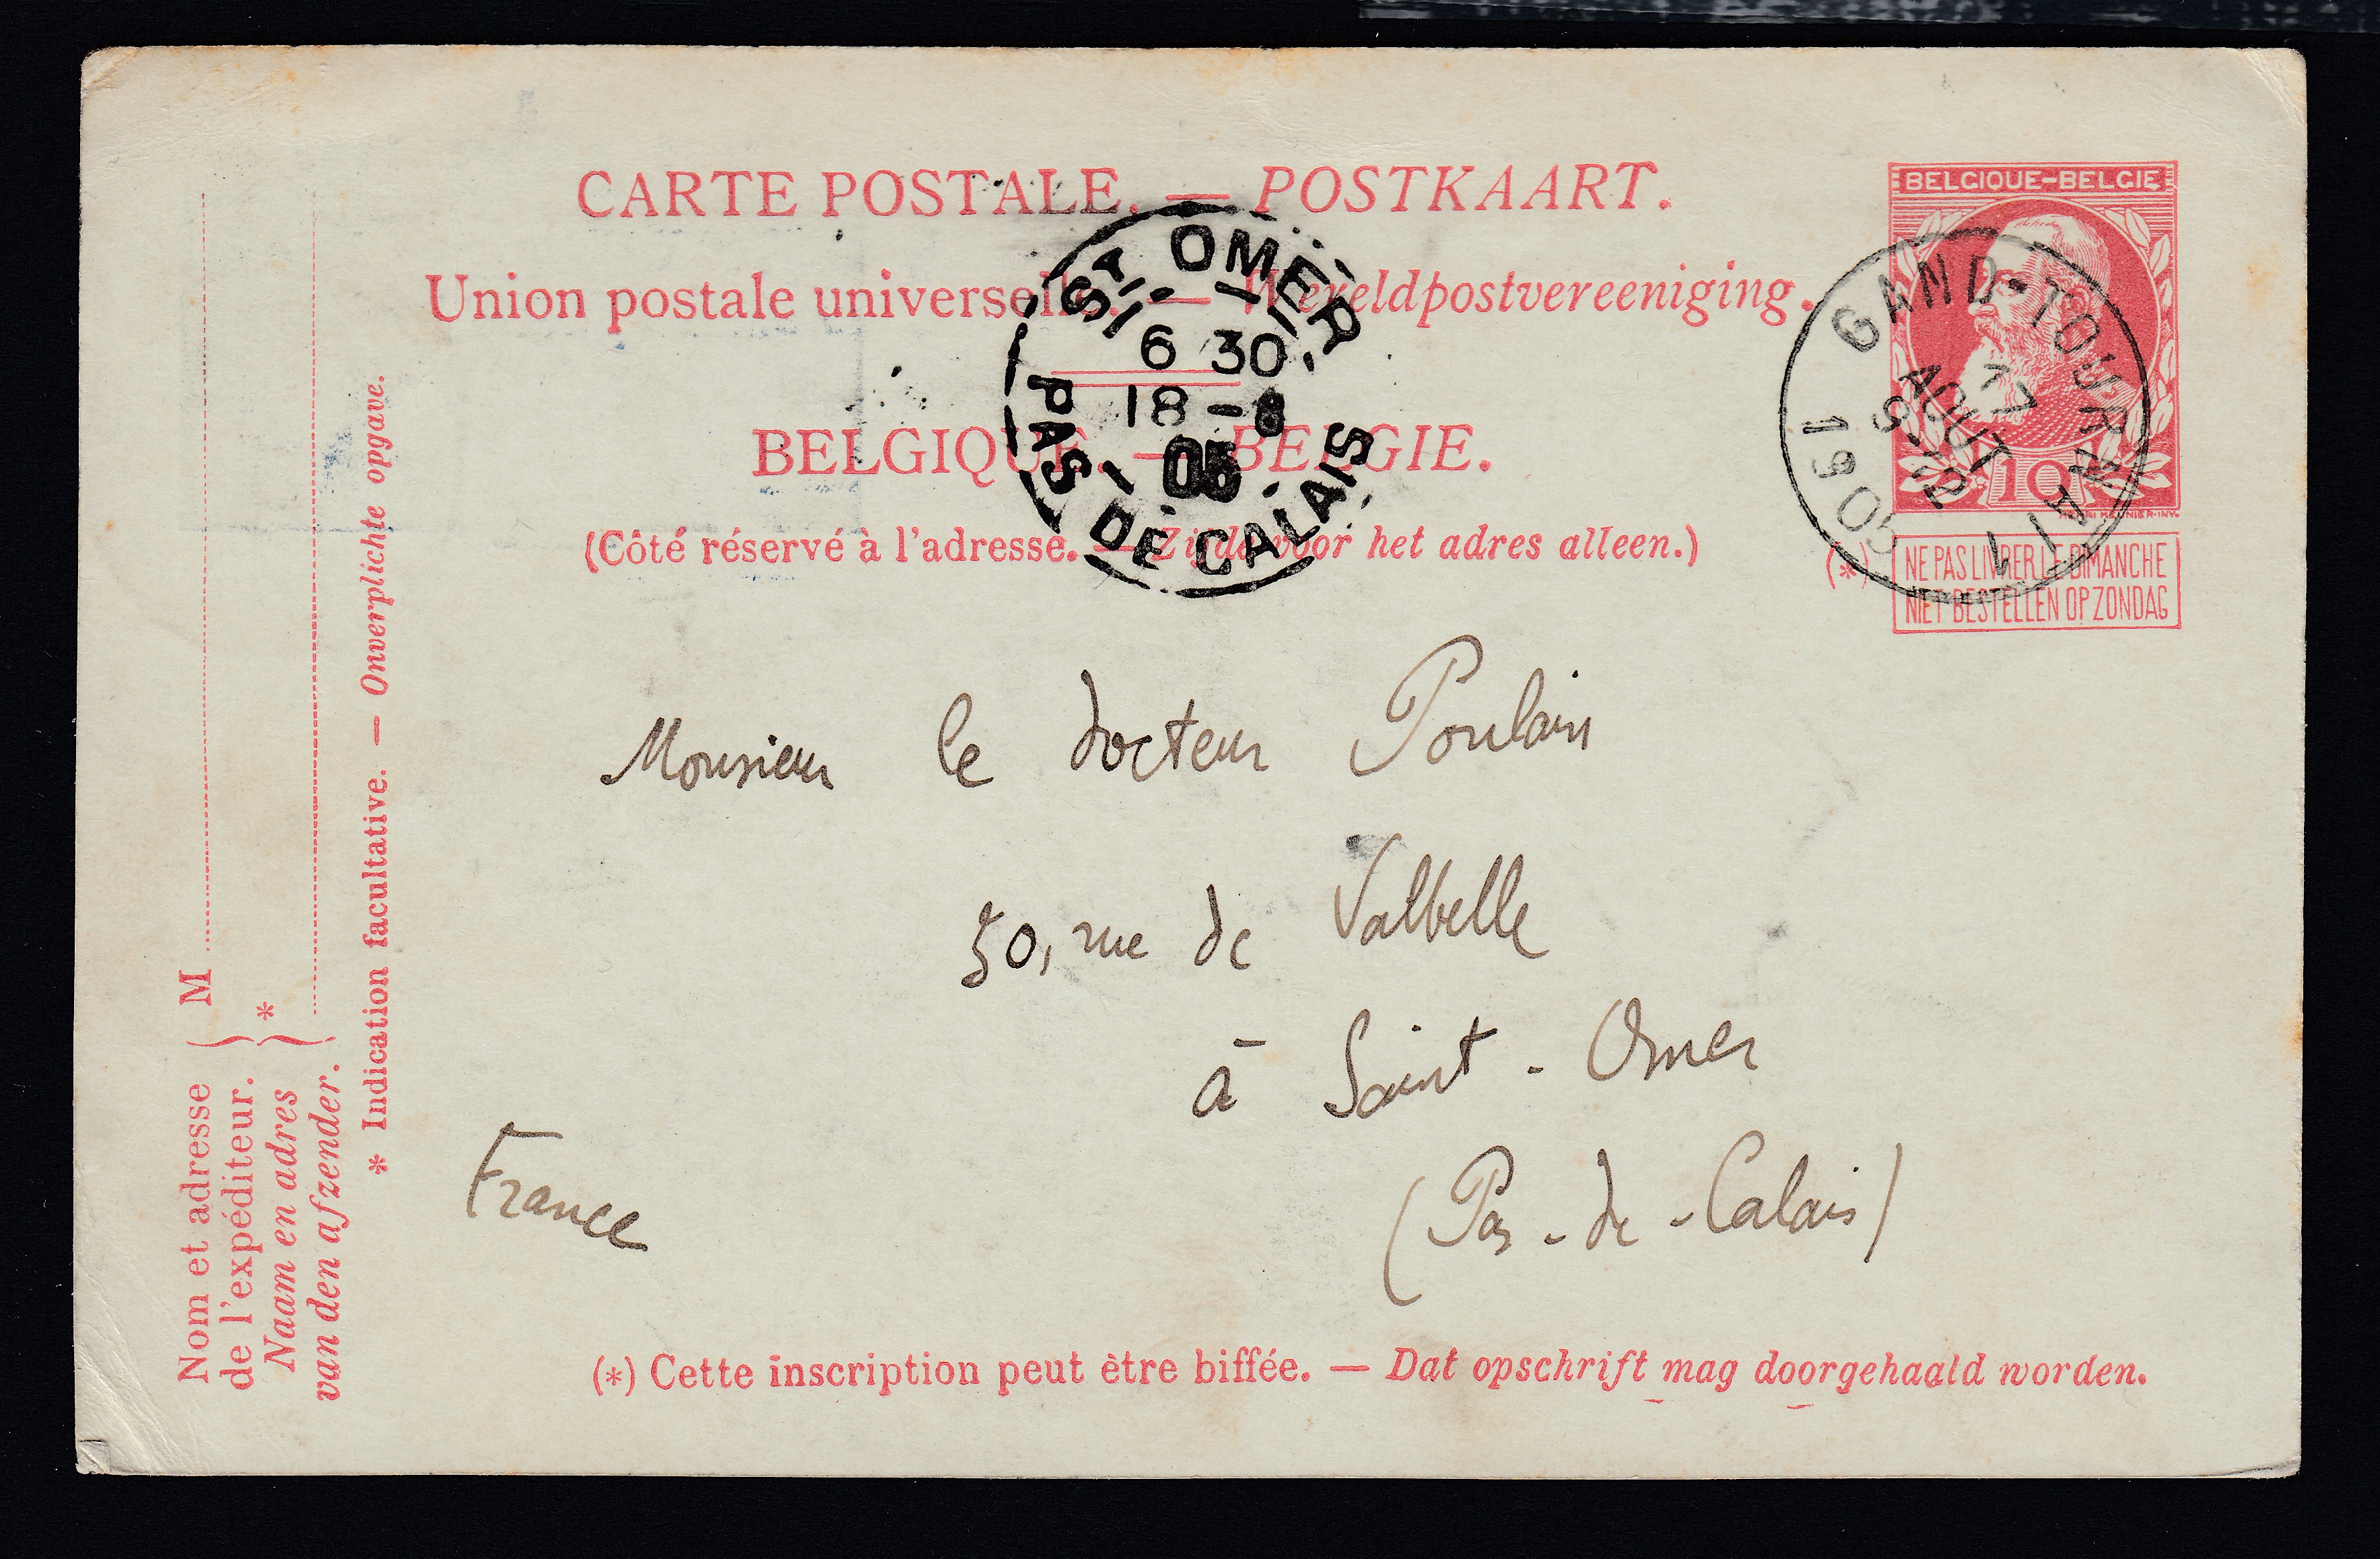 CARTE POSTALE. — POSTKAART.
Union postale universelle. — Wereldpostvereeniging.
BELGIQUE. — BELGIE.
(Côté réservé à l'adresse. — Zijde voor het adres alleen.)
BELGIQUE-BELGIE
10
(*) NE PAS LIVRER LE DIMANCHE
NIET BESTELLEN OP ZONDAG
GAND-TOURNAI 1
17
AOUT
9-12
1905
ST. OMER
6 30
18-8
05
PAS DE CALAIS
Monsieur le docteur Poulain
50, rue de Valbelle
à Saint-Omer
(Pas-de-Calais)
France
(*) Cette inscription peut être biffée. — Dat opschrift mag doorgehaald worden.
Nom et adresse
de l'expéditeur.
Naam en adres
van den afzender.
M
*
* Indication facultative. — Onverplichte opgave.